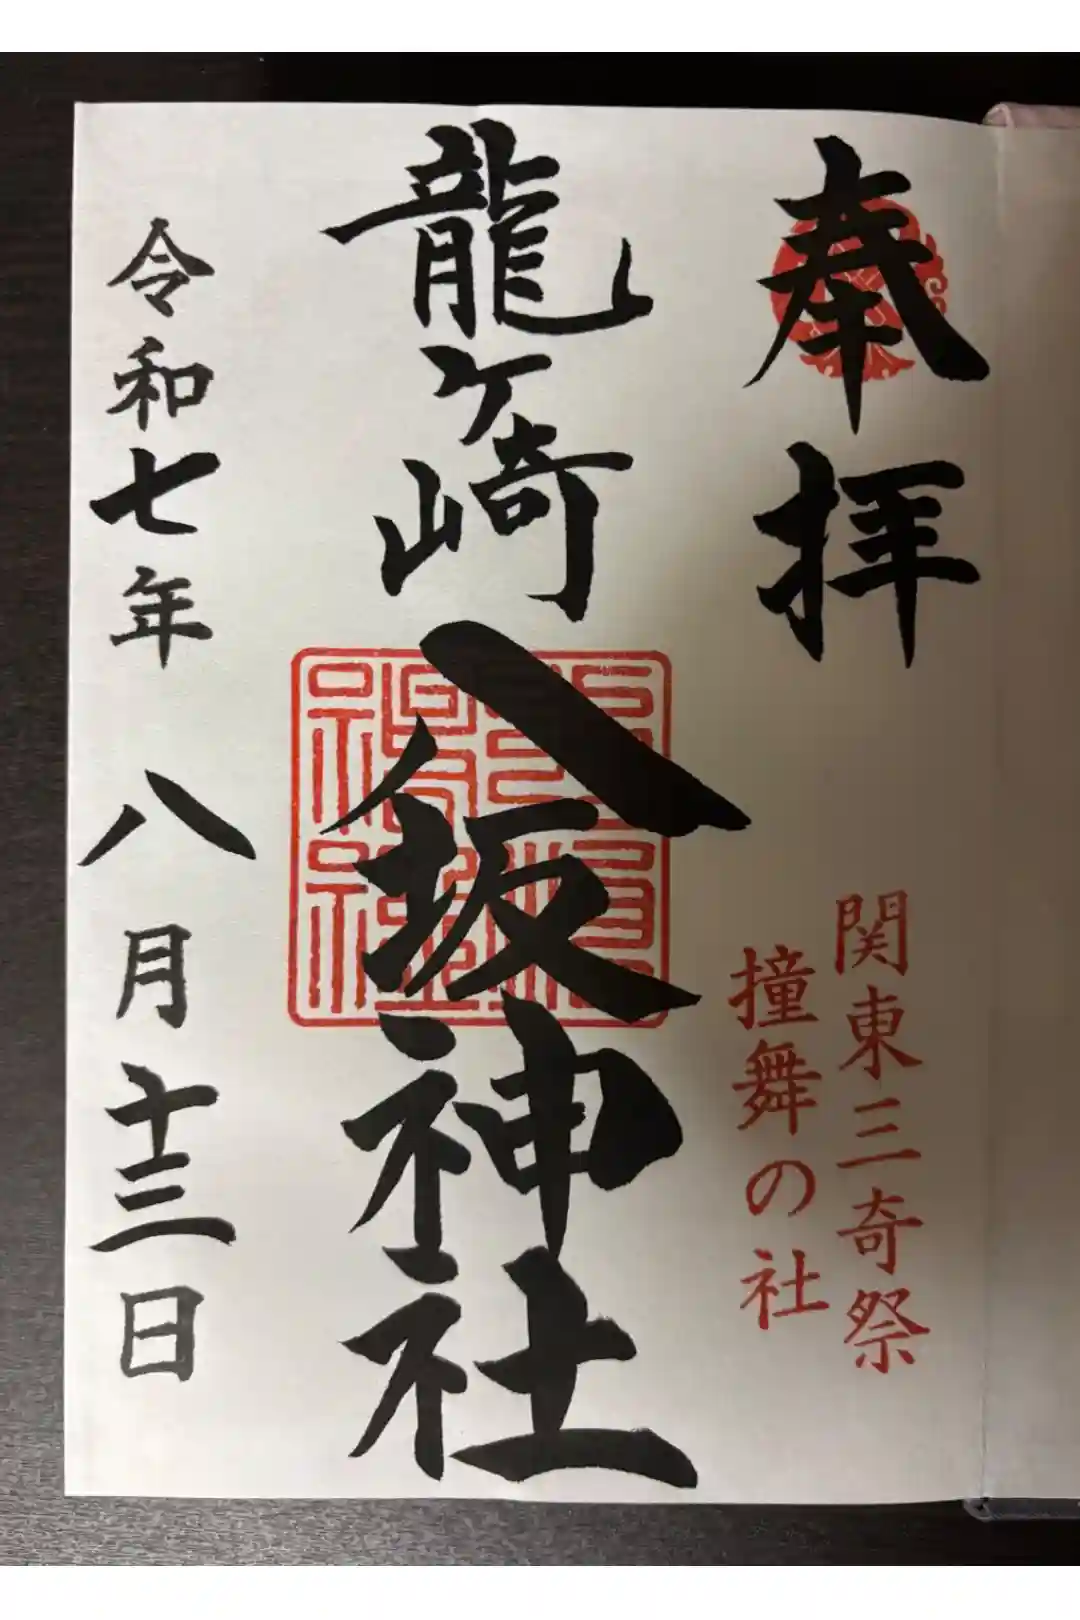 奉拝
関東三奇祭
撞舞の社
龍ヶ崎八坂神社
令和七年八月十三日